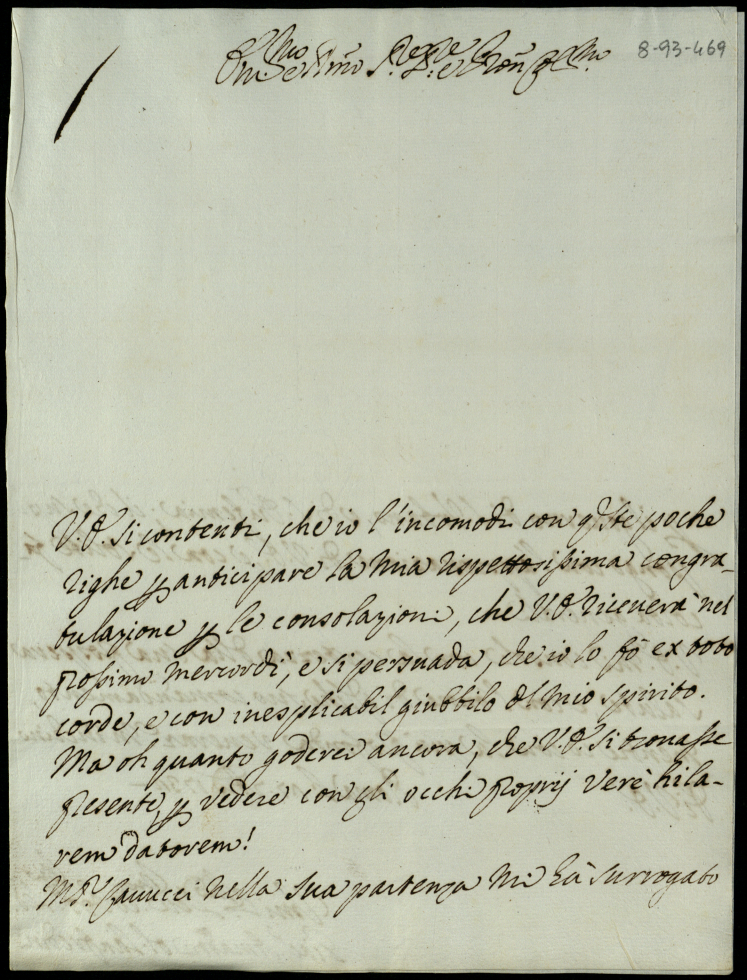 8-93-469
V.E. si contenti, che io l'incomodi con q̃ste poche
righe p̱ anticipare la mia rispettosissima congra-
tulazione p̱ le consolazioni, che V.E. riceverà nel
prossimo Mercordì, e si persuada, che io lo fò ex toto
corde, e con inesplicabil giubbilo del mio spirito.
Ma oh quanto goderei ancora, che V.E. si trovasse
presente, p̱ vedere con gli occhi proprij verè hila-
rem datorem!
nella sua partenza mi hà surrogato